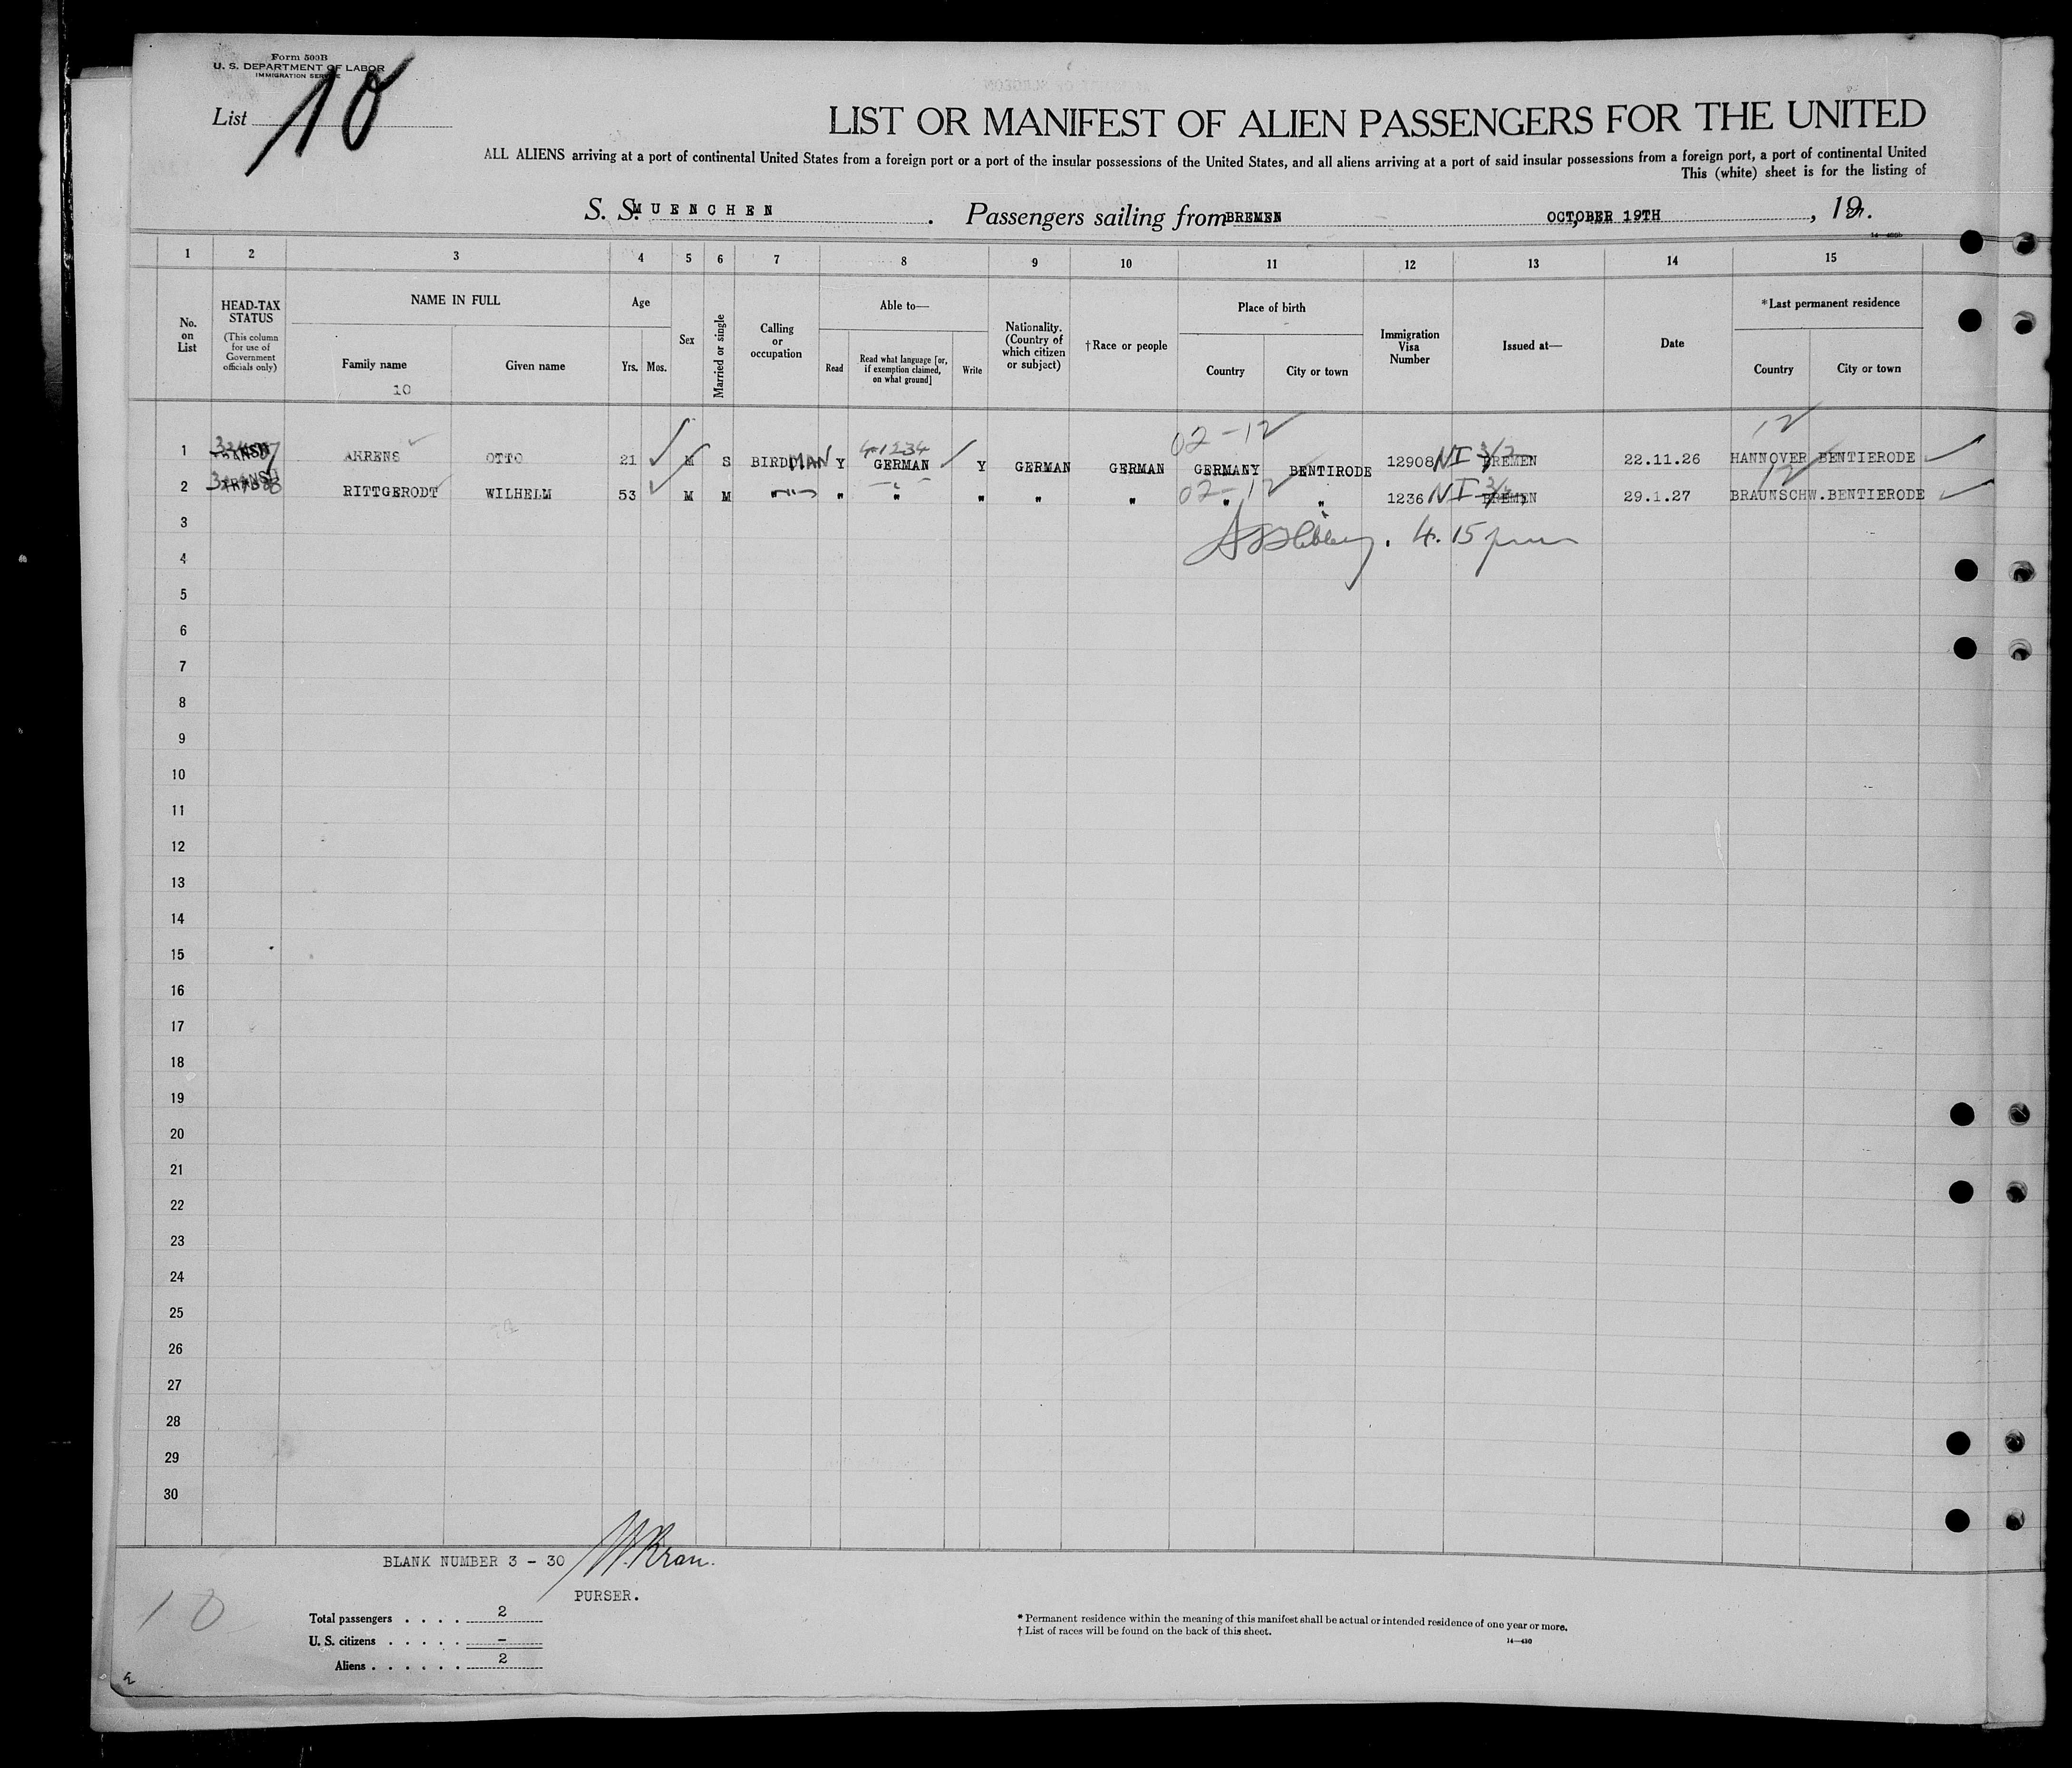 Form 500B
U. S. DEPARTMENT OF LABOR
IMMIGRATION SERVICE
List 10
LIST OR MANIFEST OF ALIEN PASSENGERS FOR THE UNITED
ALL ALIENS arriving at a port of continental United States from a foreign port or a port of the insular possessions of the United States, and all aliens arriving at a port of said insular possessions from a foreign port, a port of continental United
This (white) sheet is for the listing of
S. S. MUENCHEN . Passengers sailing from BREMEN OCTOBER 19TH , 19
1 2 3 4 5 6 7 8 9 10 11 12 13 14 15
No. on List
HEAD-TAX STATUS
(This column for use of Government officials only)
NAME IN FULL
Family name
Given name
10
Age
Yrs. Mos.
Sex
Married or single
Calling or occupation
Able to—
Read
Read what language [or, if exemption claimed, on what ground]
Write
Nationality. (Country of which citizen or subject)
†Race or people
Place of birth
Country
City or town
Immigration Visa Number
Issued at—
Date
*Last permanent residence
Country
City or town
02-12 12
1 AHRENS OTTO 21 M S BIRDMAN Y GERMAN Y GERMAN GERMAN GERMANY BENTIRODE 12908 NI BREMEN 22.11.26 HANNOVER BENTIERODE
02-12 12
2 RITTGERODT WILHELM 53 M M " " " " " " " " 1236 NI BREMEN 29.1.27 BRAUNSCHW. BENTIERODE
3
4.15 pm
4
5
6
7
8
9
10
11
12
13
14
15
16
17
18
19
20
21
22
23
24
25
26
27
28
29
30
BLANK NUMBER 3 - 30
PURSER.
10
Total passengers . . . . 2
U. S. citizens . . . . . –
Aliens . . . . . . 2
* Permanent residence within the meaning of this manifest shall be actual or intended residence of one year or more.
† List of races will be found on the back of this sheet.
14—430